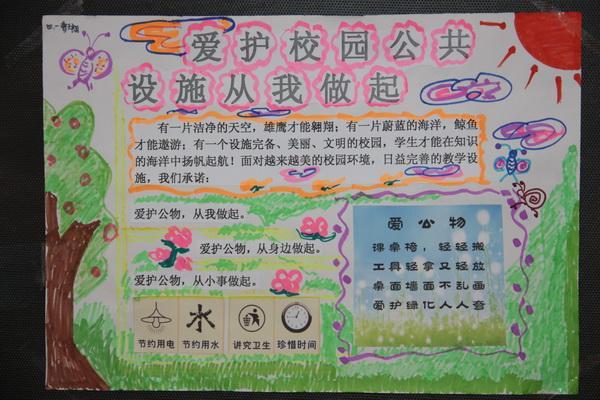 爱护校园公共
设施从我做起
有一片洁净的天空，雄鹰才能翱翔；有一片蔚蓝的海洋，鲸鱼
才能遨游；有一个设施完备、美丽、文明的校园，学生才能在知识
的海洋中扬帆起航！面对越来越美的校园环境，日益完善的教学设
施，我们承诺：
爱护公物，从我做起。
爱护公物，从身边做起。
爱护公物，从小事做起。
节约用电
节约用水
讲究卫生
珍惜时间
爱公物
课桌椅，轻轻搬
工具轻拿又轻放
桌面墙面不乱画
爱护绿化人人夸